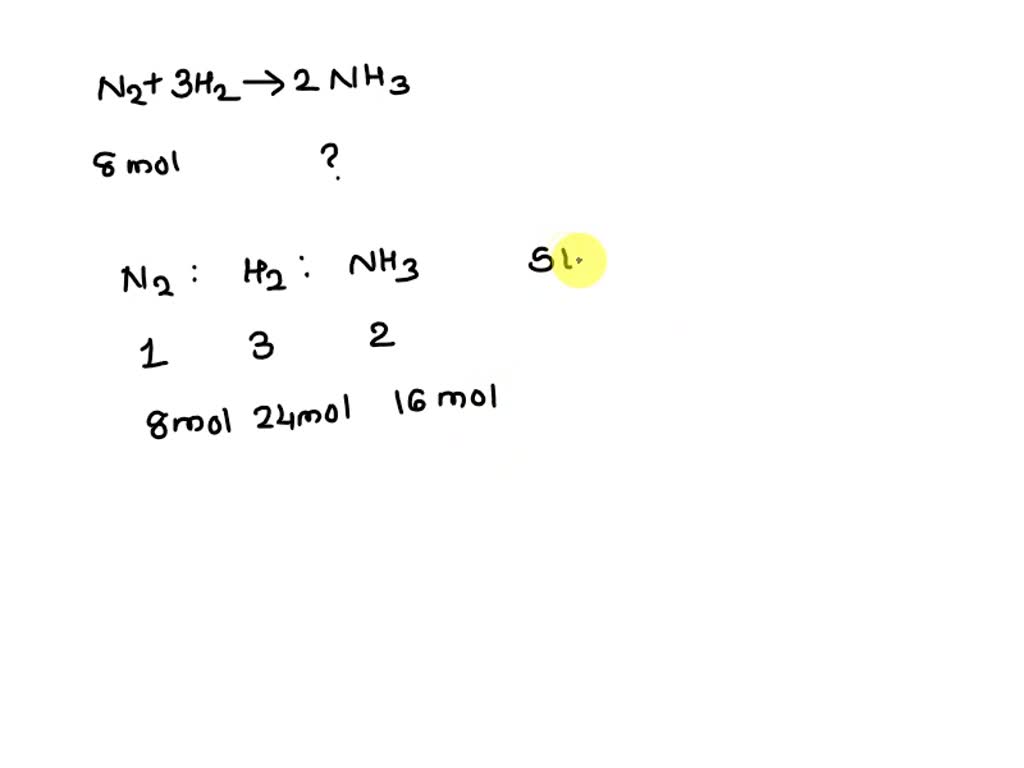 N₂ + 3H₂ → 2 NH₃
8 mol ?
N₂ : H₂ : NH₃
1 3 2
8mol 24mol 16 mol